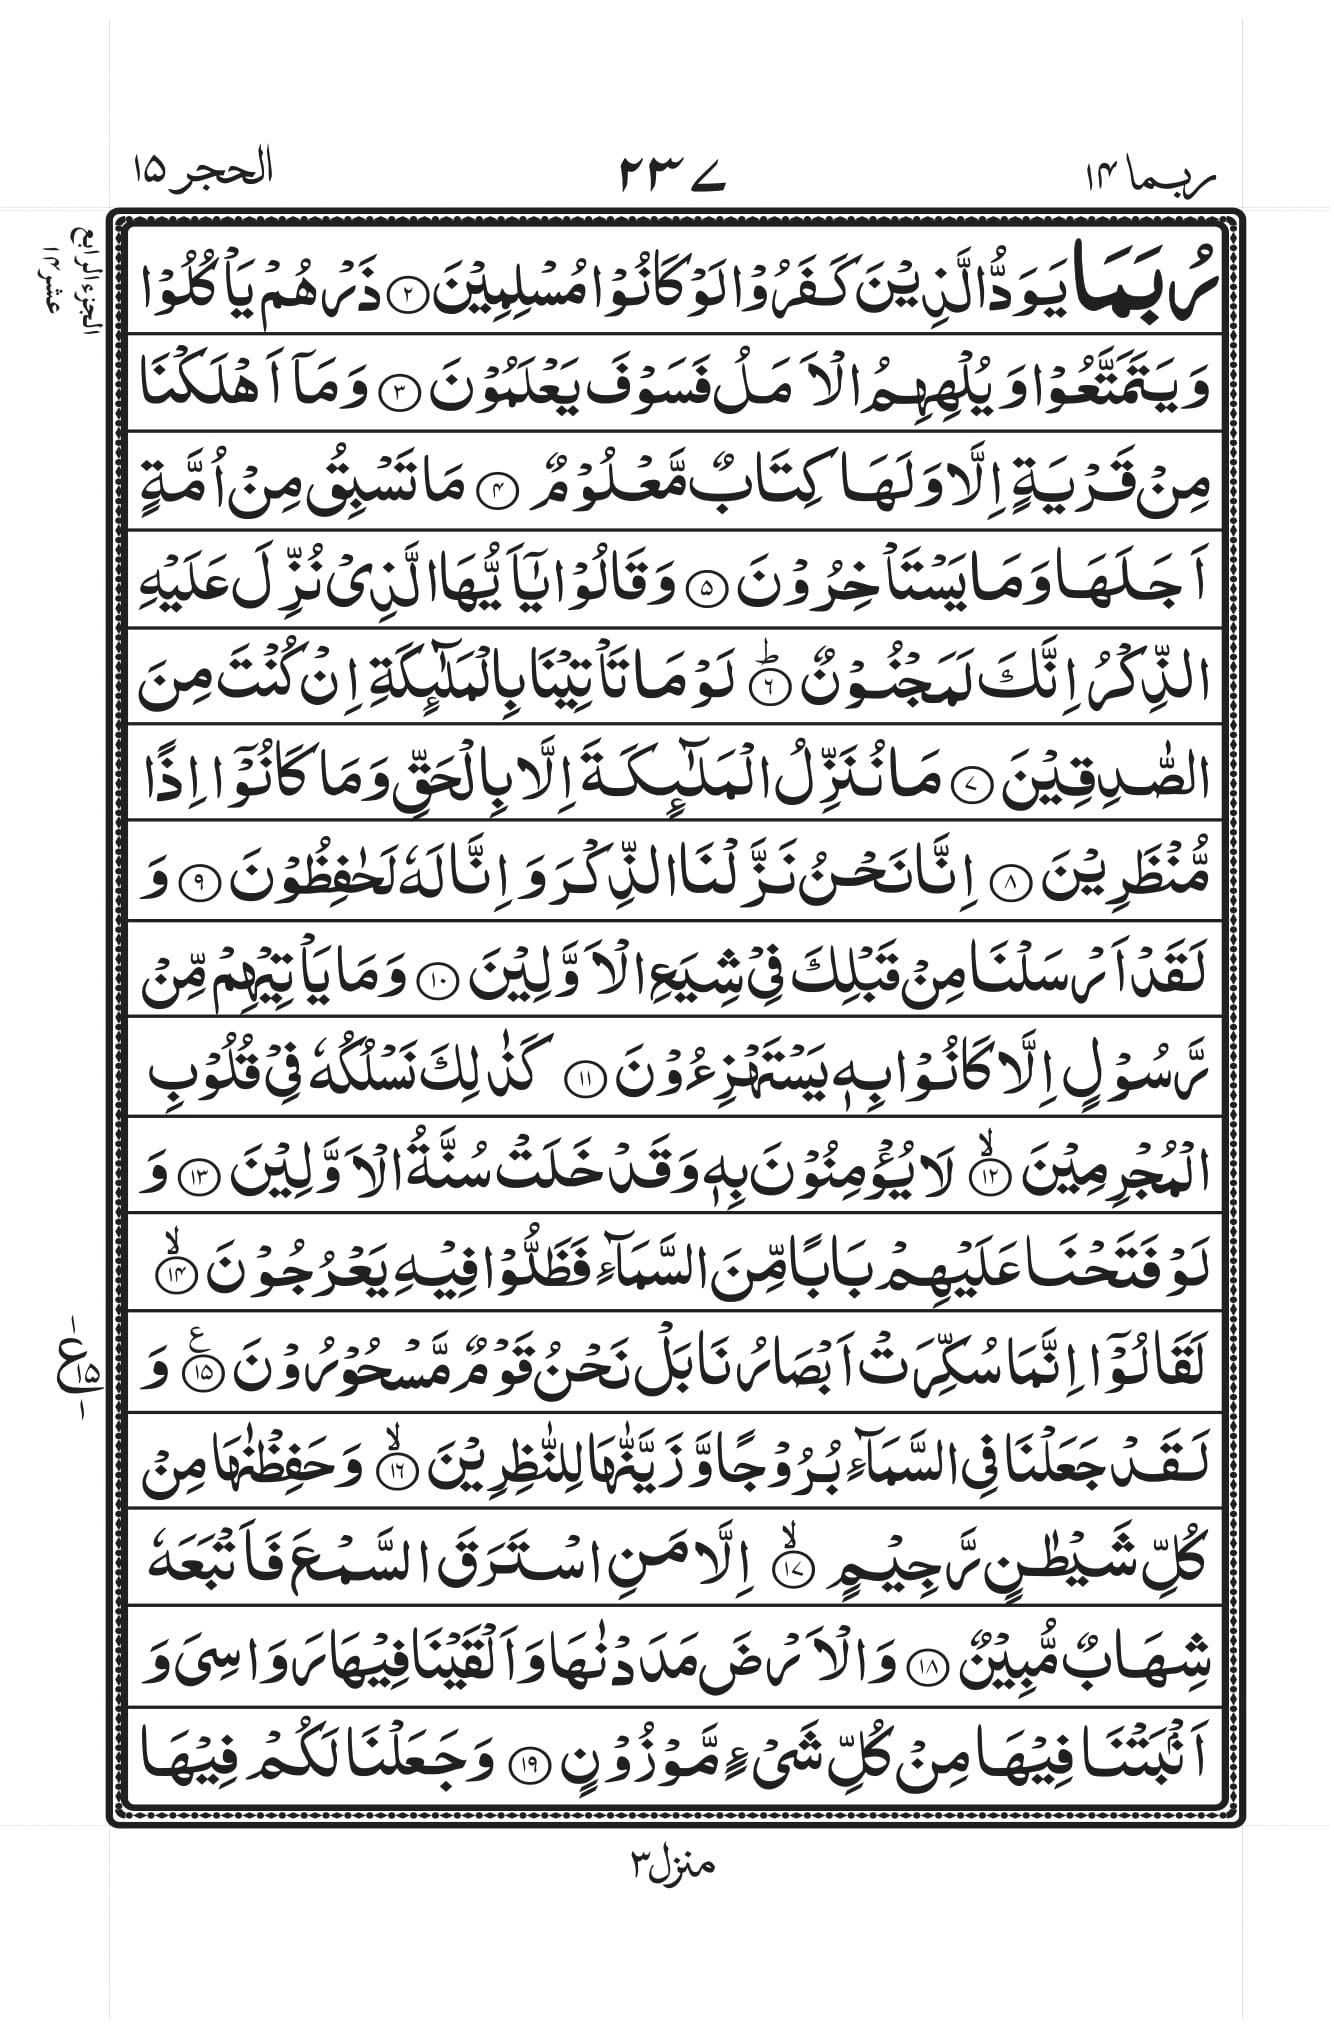 ربما ۱۴
۲۳۷
الحجر ۱۵
الجزء الرابع
عشر ۱۴
رُبَمَا يَوَدُّ الَّذِيْنَ كَفَرُوْا لَوْ كَانُوْا مُسْلِمِيْنَ ۲ ذَرْهُمْ يَاْكُلُوْا
وَيَتَمَتَّعُوْا وَيُلْهِهِمُ الْاَمَلُ فَسَوْفَ يَعْلَمُوْنَ ۳ وَمَآ اَهْلَكْنَا
مِنْ قَرْيَةٍ اِلَّا وَلَهَا كِتَابٌ مَّعْلُوْمٌ ۴ مَا تَسْبِقُ مِنْ اُمَّةٍ
اَجَلَهَا وَمَا يَسْتَاْخِرُوْنَ ۵ وَقَالُوْا يٰٓاَيُّهَا الَّذِىْ نُزِّلَ عَلَيْهِ
الذِّكْرُ اِنَّكَ لَمَجْنُوْنٌ ؕ ۶ لَوْ مَا تَاْتِيْنَا بِالْمَلٰٓئِكَةِ اِنْ كُنْتَ مِنَ
الصّٰدِقِيْنَ ۷ مَا نُنَزِّلُ الْمَلٰٓئِكَةَ اِلَّا بِالْحَقِّ وَمَا كَانُوْٓا اِذًا
مُّنْظَرِيْنَ ۸ اِنَّا نَحْنُ نَزَّلْنَا الذِّكْرَ وَاِنَّا لَهٗ لَحٰفِظُوْنَ ۹ وَ
لَقَدْ اَرْسَلْنَا مِنْ قَبْلِكَ فِىْ شِيَعِ الْاَوَّلِيْنَ ۱۰ وَمَا يَاْتِيْهِمْ مِّنْ
رَّسُوْلٍ اِلَّا كَانُوْا بِهٖ يَسْتَهْزِءُوْنَ ۱۱ كَذٰلِكَ نَسْلُكُهٗ فِىْ قُلُوْبِ
الْمُجْرِمِيْنَ ۙ ۱۲ لَا يُؤْمِنُوْنَ بِهٖ وَقَدْ خَلَتْ سُنَّةُ الْاَوَّلِيْنَ ۱۳ وَ
لَوْ فَتَحْنَا عَلَيْهِمْ بَابًا مِّنَ السَّمَآءِ فَظَلُّوْا فِيْهِ يَعْرُجُوْنَ ۙ ۱۴
لَقَالُوْٓا اِنَّمَا سُكِّرَتْ اَبْصَارُنَا بَلْ نَحْنُ قَوْمٌ مَّسْحُوْرُوْنَ ع ۱۵ وَ
۱
ع ۱۵
۱
لَقَدْ جَعَلْنَا فِى السَّمَآءِ بُرُوْجًا وَّزَيَّنّٰهَا لِلنّٰظِرِيْنَ ۙ ۱۶ وَحَفِظْنٰهَا مِنْ
كُلِّ شَيْطٰنٍ رَّجِيْمٍ ۙ ۱۷ اِلَّا مَنِ اسْتَرَقَ السَّمْعَ فَاَتْبَعَهٗ
شِهَابٌ مُّبِيْنٌ ۱۸ وَالْاَرْضَ مَدَدْنٰهَا وَاَلْقَيْنَا فِيْهَا رَوَاسِىَ وَ
اَنْۢبَتْنَا فِيْهَا مِنْ كُلِّ شَىْءٍ مَّوْزُوْنٍ ۱۹ وَجَعَلْنَا لَكُمْ فِيْهَا
منزل ۳